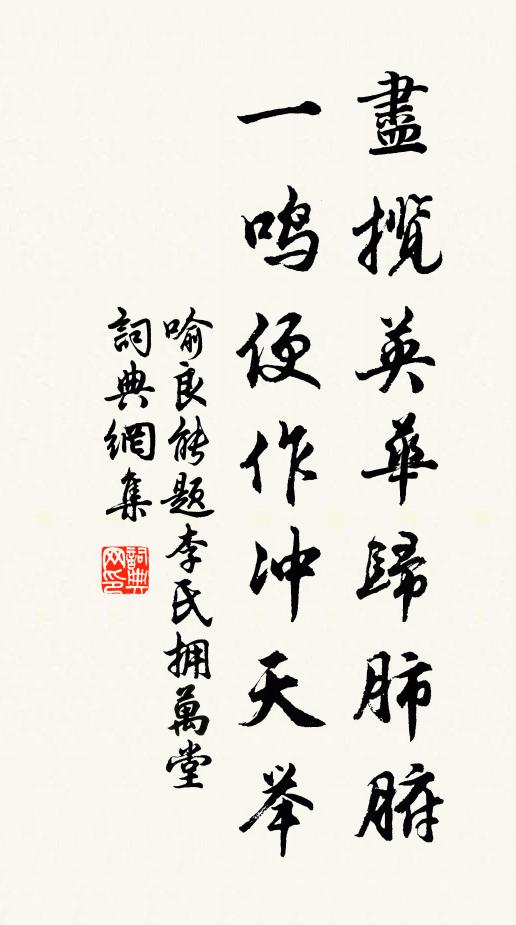 盡攬英華歸肺腑
一鸣便作冲天举
喻良能題李氏拥萬堂
詞典網集
詞典网印